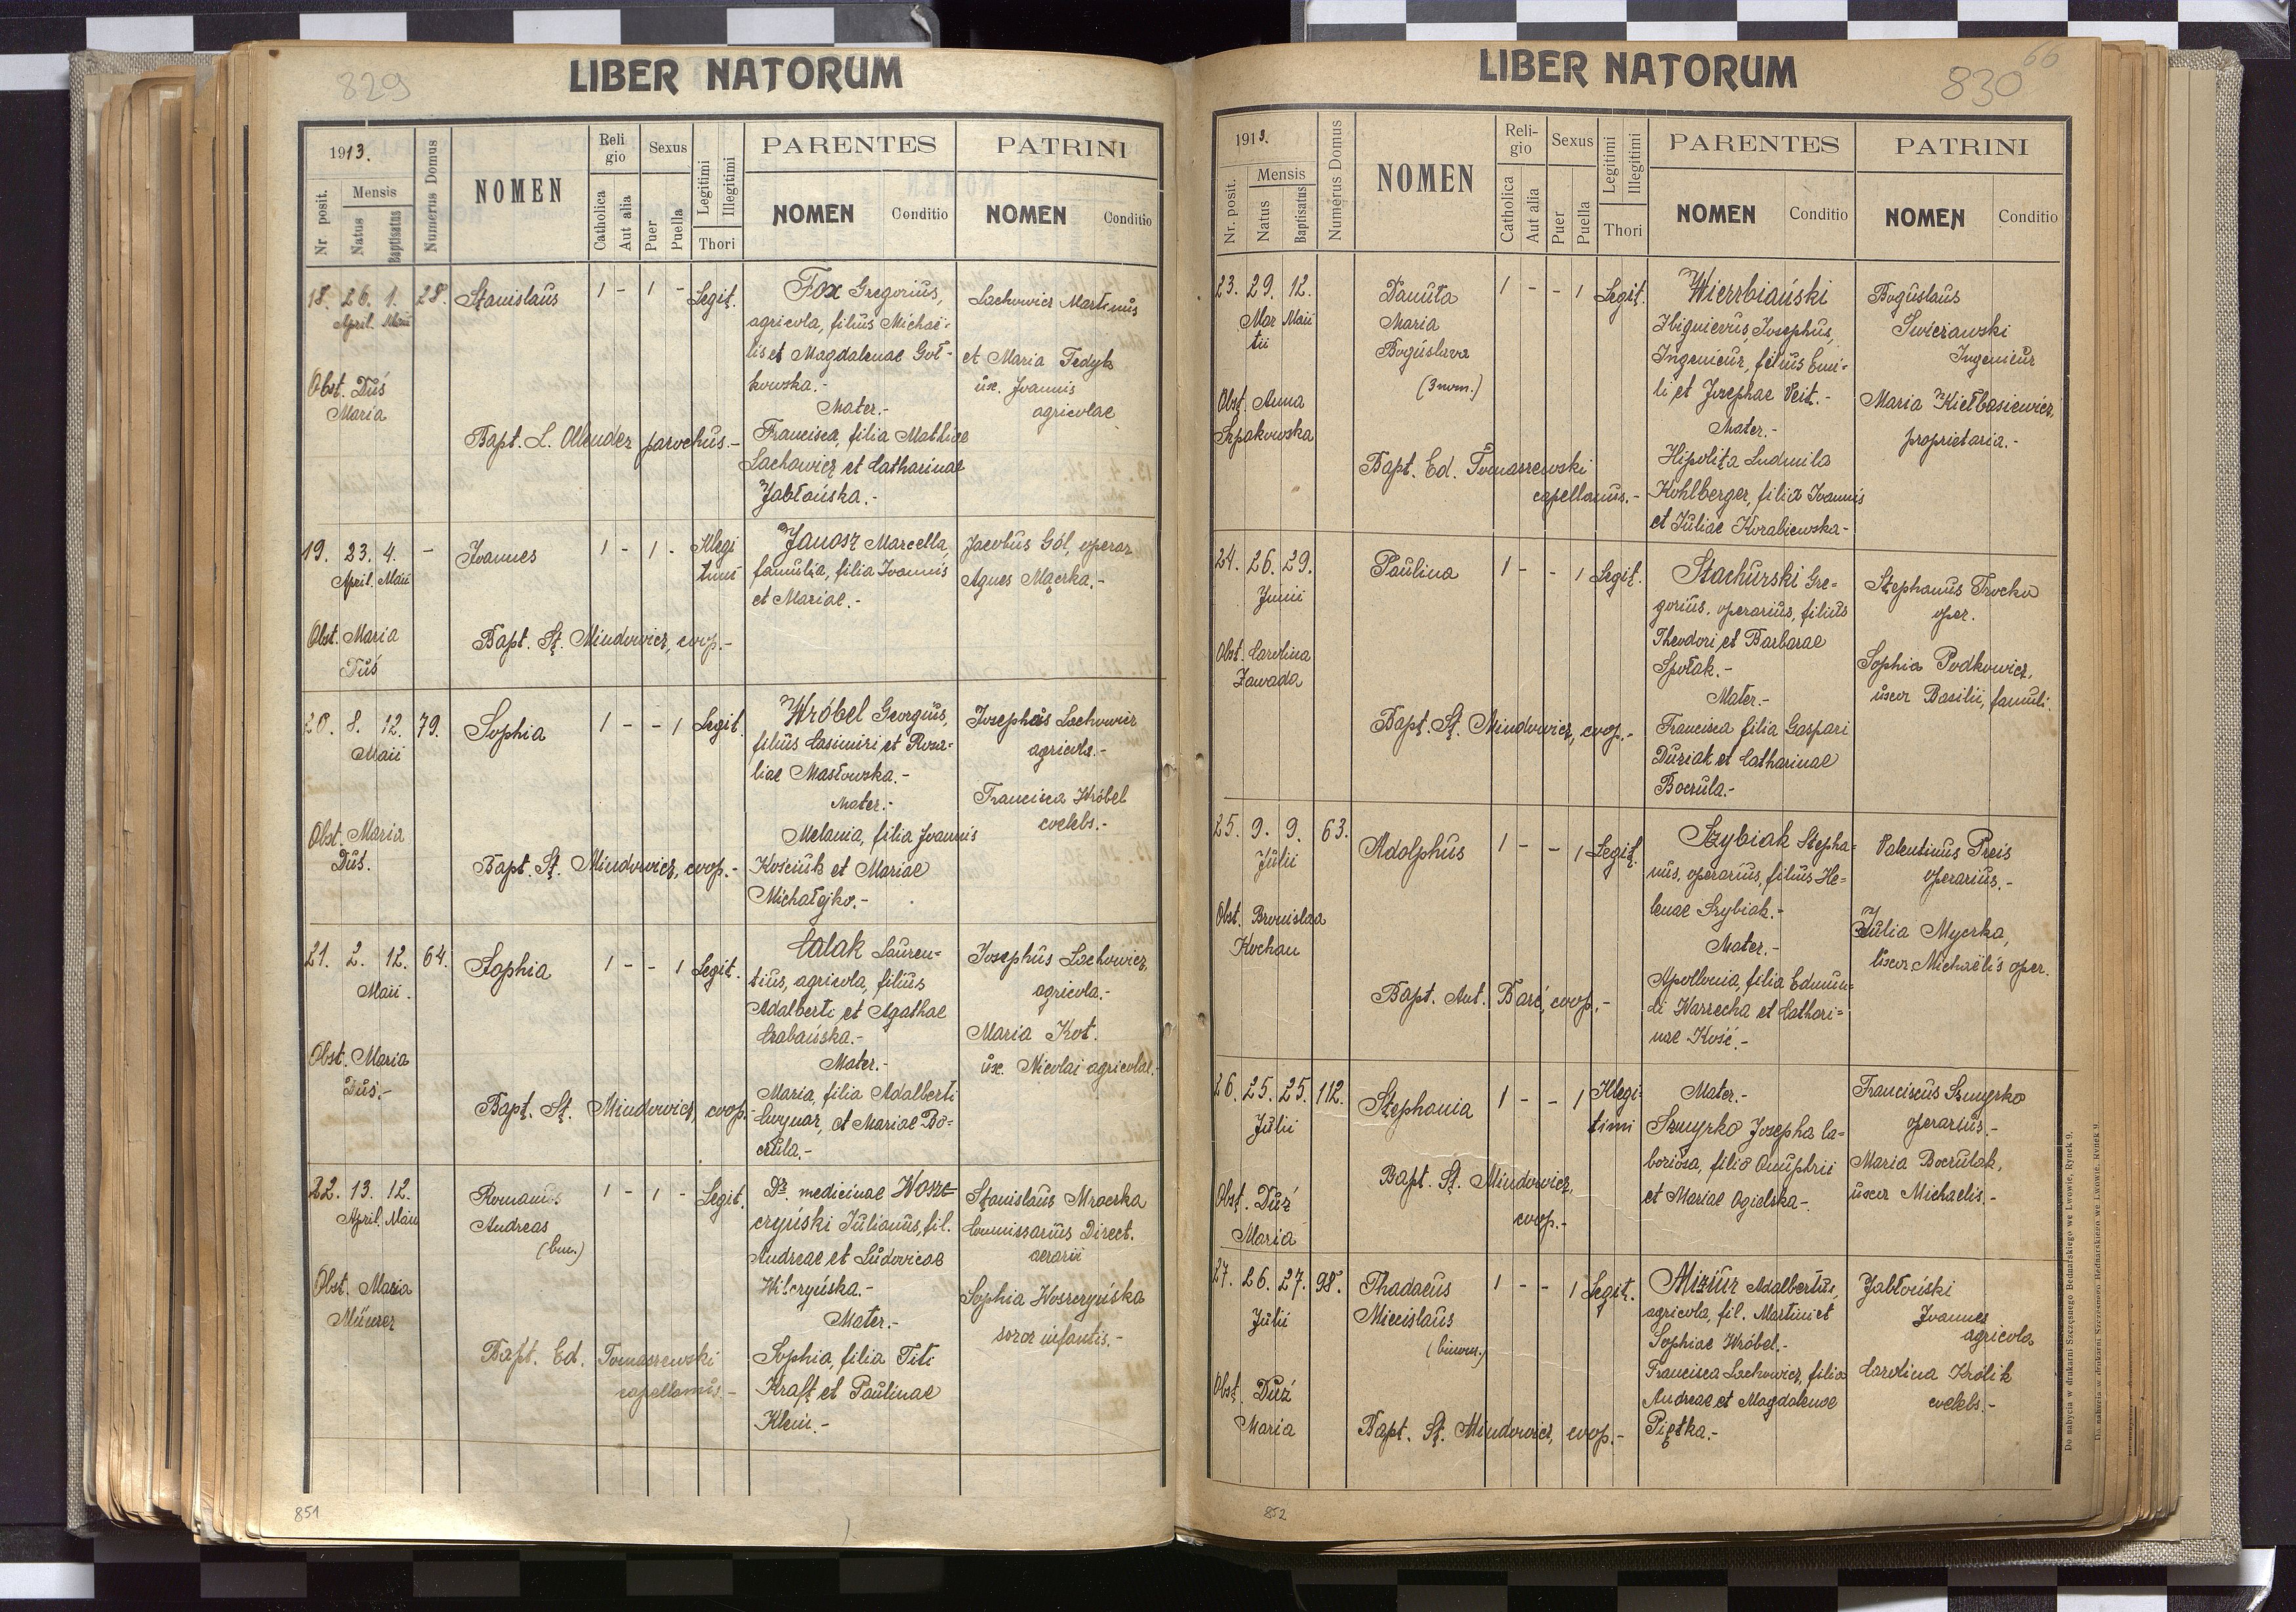 829
LIBER NATORUM
1913.
Nr. posit.
Mensis
Natus
Baptisatus
Numerus Domus
NOMEN
Religio
Catholica
Aut alia
Sexus
Puer
Puella
Legitimi
Illegitimi
Thori
PARENTES
NOMEN Conditio
PATRINI
NOMEN Conditio
18. 26. 1. 28. Stanislaus 1 - 1 - Legit.
April. Maii
Obst. Duś
Maria
Bapt. L. Ollender parochus.-
Fox Gregorius,
agricola, filius Michaë-
lis et Magdalenae Goł-
kowska.-
Mater.-
Francisca, filia Mathiae
Lachowicz et Catharinae
Jabłońska.-
Lachowicz Martinus
et Maria Fedyk
ux. Joannis
agricolae
19. 23. 4. - Joannes 1 - 1 - Illegi
timi
April. Maii
Obst. Maria
Duś
Bapt. St. Mindowicz, coop.-
Janosz Marcella,
famulia, filia Joannis
et Mariae.-
Jacobus Gól, operar.
Agnes Macrka.-
20. 8. 12. 79. Sophia 1 - - 1 Legit.
Maii
Obst. Maria
Duś.
Bapt. St. Mindowicz, coop.-
Wróbel Georgius,
filius Casimiri et Rosa-
liae Masłowska.-
Mater.-
Melania, filia Joannis
Kościuk et Mariae
Michałejko.-
Josephus Lachowicz
agricola.-
Francisca Wróbel
coelebs.-
21. 2. 12. 64. Sophia 1 - - 1 Legit.
Maii.
Obst. Maria
Duś.-
Bapt. St. Mindowicz, coop.-
Calak Lauren-
tius, agricola, filius
Adalberti et Agathae
Grabańska.-
Mater.-
Maria, filia Adalberti
Cwynar, et Mariae Bo-
czula.-
Josephus Lachowicz,
agricola.-
Maria Kot.
ux. Nicolai agricolae.-
22. 13. 12. Romanus 1 - 1 - Legit.
April. Maii
Andreas
(bin.)
Obst. Maria
Münzer
Bapt. Ed. Tomaszewski
capellanus.-
Dr. medicinae Wosz-
czyński Julianus, fil.
Andreae et Ludovicae
Wilczyńska.-
Mater.-
Sophia, filia Titi
Kraft et Paulinae
Klein.-
Stanislaus Mroczka
Commissarius Direct.
aerarii
Sophia Woszczyńska
soror infantis.-
851
66
830
LIBER NATORUM
1913.
Nr. posit.
Mensis
Natus
Baptisatus
Numerus Domus
NOMEN
Religio
Catholica
Aut alia
Sexus
Puer
Puella
Legitimi
Illegitimi
Thori
PARENTES
NOMEN Conditio
PATRINI
NOMEN Conditio
23. 29. 12. Danuta 1 - - 1 Legit.
Mar Maii
tii
Maria
Boguslava
(3 nom.)
Obst. Anna
Szpakowska
Bapt. Ed. Tomaszewski
capellanus.-
Wierzbiański
Zbignievus, Josephus,
Ingenieur, filius Emi-
li et Josephae Veit.-
Mater.-
Hipolita Ludmila
Kohlberger, filia Joannis
et Juliae Korabiewska-
Boguslaus
Swierawski
Ingenieur
Maria Kiełbasiewicz,
proprietaria.-
24. 26. 29. Paulina 1 - - 1 Legit.
Junii
Obst. Carolina
Zawada
Bapt. St. Mindowicz, coop.-
Stachurski Gre-
gorius, operarius, filius
Theodori et Barbarae
Spolak.-
Mater.-
Francisca filia Gaspari
Duziak et Catharinae
Boczula.-
Stephanus Trocko
oper.
Sophia Podkowicz,
uxor Basilii, famuli.
25. 9. 9. 63. Adolphus 1 - - 1 Legit.
Julii
Obst. Bronislaa
Kochan
Bapt. Ant. Barć, coop.-
Szybiak Stepha-
nus, operarius, filius He-
lenae Szybiak.-
Mater.-
Apollonia, filia Edmun-
di Warzecha et Cathari-
nae Kość.-
Valentinus Preis
operarius.-
Julia Mycrka,
uxor Michaëlis oper.
26. 25. 25. 112. Stephania 1 - - 1 Illegi-
timi
Julii
Obst. Duź
Maria
Bapt. St. Mindowicz,
coop.-
Mater.-
Szmyrko Josepha la-
boriosa, filia Onuphrii
et Mariae Ogielska-.
Franciscus Szmyrko
operarius.-
Maria Boczulak,
uxor Michaelis.-
27. 26. 27. 98. Thadaeus 1 - - 1 Legit.
Julii
Miecislaus
(binom.)
Obst. Duź
Maria
Bapt. St. Mindowicz, coop.-
Miziur Adalbertus,
agricola, fil. Martini et
Sophiae Wróbel.-
Francisca Lachowicz, filia
Andreae et Magdalenae
Piętka.-
Jabłoński
Joannes
agricola
Carolina Królik
coelebs.-
852
Do nabycia w drukarni Szczęsnego Bednarskiego we Lwowie, Rynek 9.
Do nabycia w drukarni Szczęsnego Bednarskiego we Lwowie, Rynek 9.